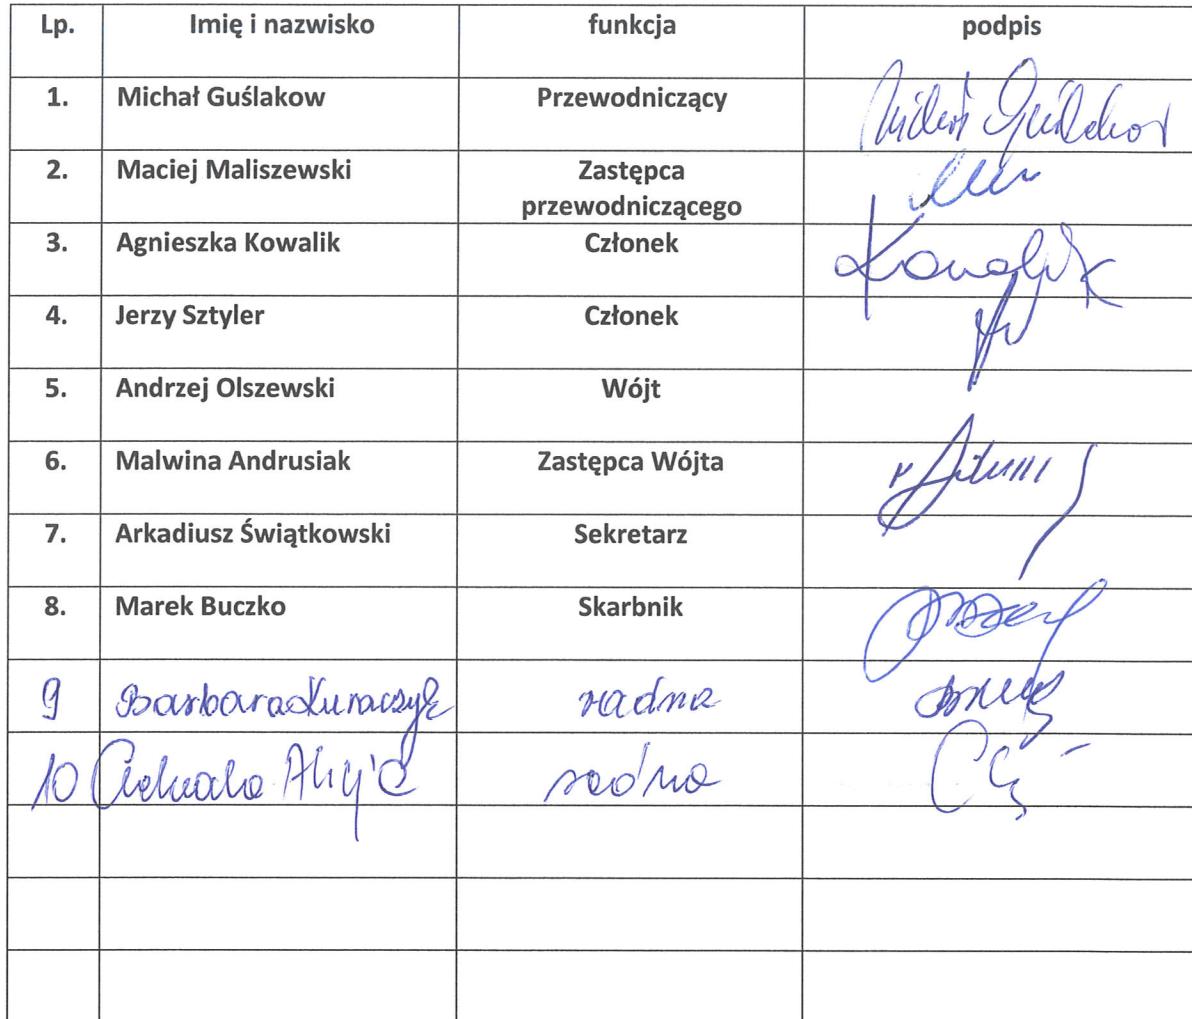 Lp. Imię i nazwisko funkcja podpis
1. Michał Guślakow Przewodniczący
2. Maciej Maliszewski Zastępca
przewodniczącego
3. Agnieszka Kowalik Członek Kowalik
4. Jerzy Sztyler Członek
5. Andrzej Olszewski Wójt
6. Malwina Andrusiak Zastępca Wójta
7. Arkadiusz Świątkowski Sekretarz
8. Marek Buczko Skarbnik
9 Barbara radna
10 Alicja radna